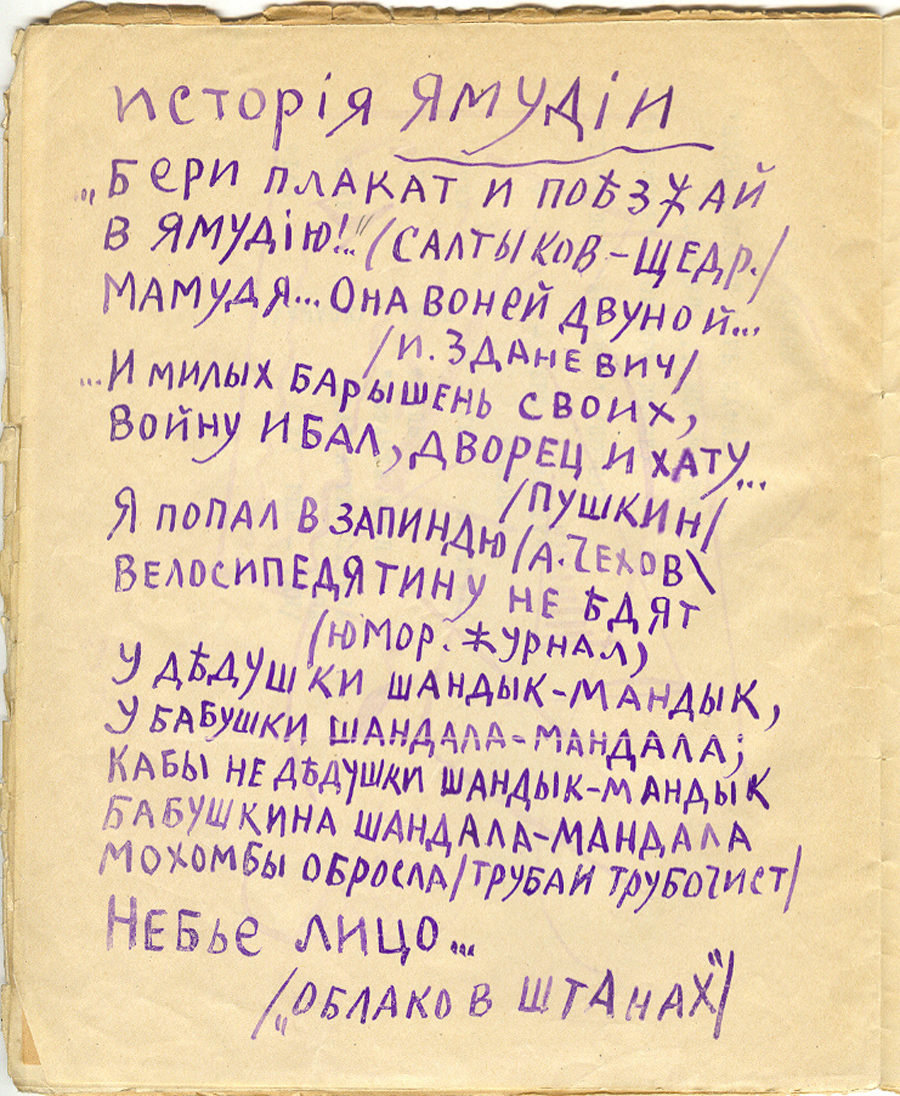 исторія ЯМУДІИ
„Бери плакат и поѣзжай
в ЯМУДІЮ!.."/САЛТЫКОВ-ЩЕДР./
МАМУДЯ... Она воней двуной...
/И. ЗДАНЕВИЧ/
...И милых барышень своих,
Войну и бал, дворец и хату...
/ПУШКИН/
Я попал в Запиндю/А.Чехов\
Велосипедятину не ѣдят
(юмор. журнал)
У дѣдушки шандык-мандык,
У бабушки шандала-мандала;
Кабы не дѣдушки шандык-мандык
Бабушкина шандала-мандала
мохомбы обросла/Трубай Трубочист/
Небье лицо...
/„Облако в штанах"/